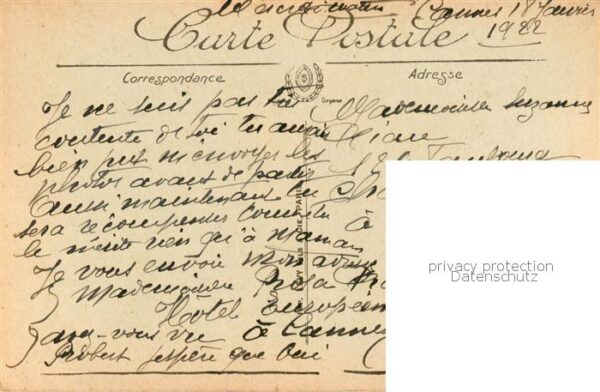 Cannes 18 Janvier
1922
Carte Postale
Correspondance
Adresse
Je ne suis pas très
contente de toi tu aurais
bien put m'envoyer les
photos avant de partir
aussi maintenant tu
sera récompenser comme tu
le mérite rien qu'à maman
Je vous envoie mon adresse
Mademoiselle Rosa
Hôtel Européen
avez-vous vu à Cannes
Robert j'espère que oui
Mademoiselle Suzanne
PARIS
privacy protection
Datenschutz